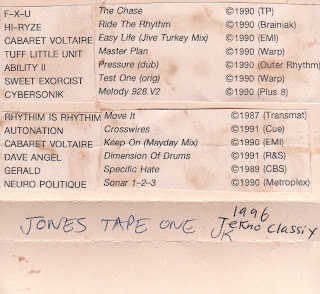 F-X-U The Chase ©1990 (TP)
HI-RYZE Ride The Rhythm ©1990 (Brainiak)
CABARET VOLTAIRE Easy Life (Jive Turkey Mix) ©1990 (EMI)
TUFF LITTLE UNIT Master Plan ©1990 (Warp)
ABILITY II Pressure (dub) ©1990 (Outer Rhythm)
SWEET EXORCIST Test One (orig) ©1990 (Warp)
CYBERSONIK Melody 928.V2 ©1990 (Plus 8)
RHYTHIM IS RHYTHIM Move It ©1987 (Transmat)
AUTONATION Crosswires ©1991 (Cue)
CABARET VOLTAIRE Keep On (Mayday Mix) ©1990 (EMI)
DAVE ANGEL Dimension Of Drums ©1991 (R&S)
GERALD Specific Hate ©1989 (CBS)
NEURO POLITIQUE Sonar 1-2-3 ©1990 (Metroplex)
1996
JONES TAPE ONE Tekno Classix
UK